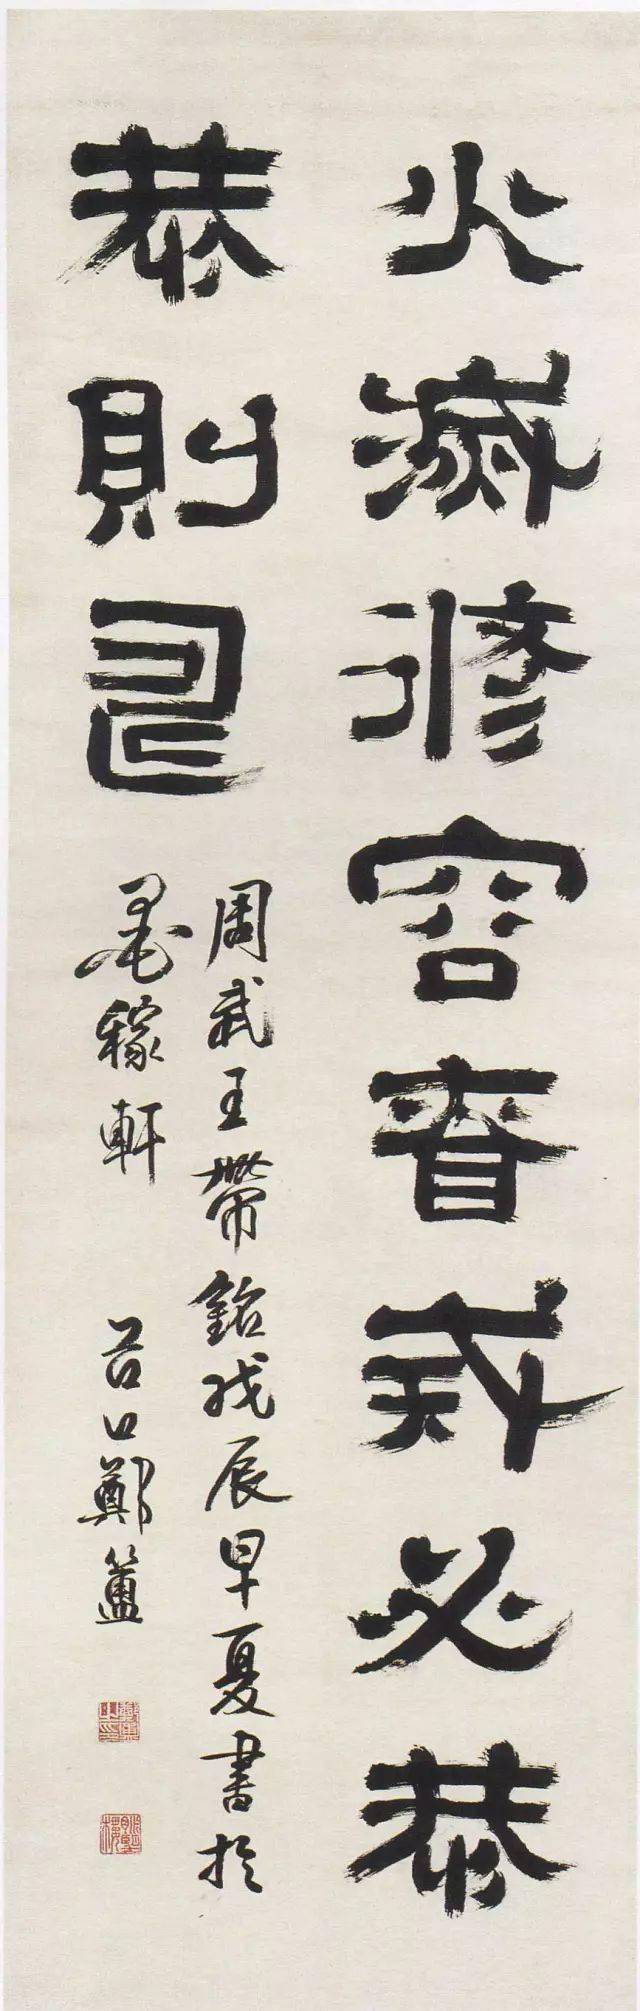 火滅修容眘戒必恭
恭則壽
周武王帶銘戊辰早夏書於
墨稼軒
谷口鄭簠